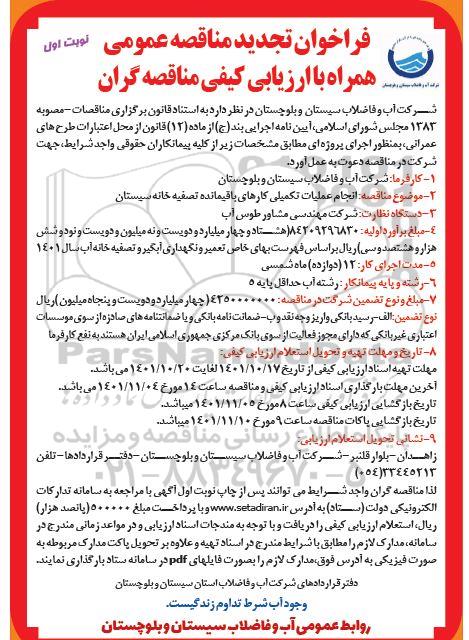 فراخوان تجدید مناقصه عمومی
همراه با ارزیابی کیفی مناقصه گران
نوبت اول
شرکت آب و فاضلاب سیستان و بلوچستان
شرکت آب و فاضلاب سیستان و بلوچستان در نظر دارد به استناد قانون برگزاری مناقصات - مصوبه
۱۳۸۳ مجلس شورای اسلامی، آیین نامه اجرایی بند (ج) از ماده (۱۲) قانون از محل اعتبارات طرح های
عمرانی، بمنظور اجرای پروژه ای مطابق مشخصات زیر از کلیه پیمانکاران حقوقی واجد شرایط، جهت
شرکت در مناقصه دعوت به عمل آورد.
۱- کارفرما: شرکت آب و فاضلاب سیستان و بلوچستان
۲- موضوع مناقصه: انجام عملیات تکمیلی کارهای باقیمانده تصفیه خانه سیستان
۳- دستگاه نظارت: شرکت مهندسی مشاور طوس آب
۴- مبلغ برآورد اولیه: ۸۴۲۰۹۲۹۶۸۳۰ (هشتاد و چهار میلیارد و دویست و نه میلیون و دویست و نود و شش
هزار و هشتصد و سی) ریال براساس فهرست بهای خاص تعمیر و نگهداری آبگیر و تصفیه خانه آب سال ۱۴۰۱
۵- مدت اجرای کار: ۱۲ (دوازده) ماه شمسی
۶- رشته و پایه پیمانکار: رشته آب حداقل پایه ۵
۷- مبلغ و نوع تضمین شرکت در مناقصه: ۴۲۵۰۰۰۰۰۰۰ (چهار میلیارد و دویست و پنجاه میلیون) ریال
نوع تضمین: الف- رسید بانکی واریز وجه نقد و ب- ضمانت نامه بانکی و یا ضمانتنامه های صادره از سوی موسسات
اعتباری غیر بانکی که دارای مجوز فعالیت از سوی بانک مرکزی جمهوری اسلامی ایران هستند به نفع کارفرما
۸- تاریخ و مهلت تهیه و تحویل استعلام ارزیابی کیفی:
مهلت تهیه اسناد ارزیابی کیفی از تاریخ ۱۴۰۱/۱۰/۱۷ لغایت ۱۴۰۱/۱۰/۲۰ می باشد.
آخرین مهلت بارگذاری اسناد ارزیابی کیفی و مناقصه ساعت ۱۴ مورخ ۱۴۰۱/۱۱/۰۴ می باشد.
تاریخ بازگشایی ارزیابی کیفی ساعت ۸ مورخ ۱۴۰۱/۱۱/۰۵ میباشد.
تاریخ بازگشایی پاکات مناقصه ساعت ۹ مورخ ۱۴۰۱/۱۱/۱۰ میباشد.
۹- نشانی تحویل استعلام ارزیابی:
زاهدان - بلوار قلنبر - شرکت آب و فاضلاب سیستان و بلوچستان - دفتر قراردادها - تلفن
۳۳۴۴۵۲۱۳ (۰۵۴)
لذا مناقصه گران واجد شرایط می توانند پس از چاپ نوبت اول آگهی با مراجعه به سامانه تدارکات
الکترونیکی دولت (ستاد) به آدرس www.setadiran.ir و با پرداخت مبلغ ۵۰۰۰۰۰ (پانصد هزار)
ریال، استعلام ارزیابی کیفی را دریافت و با توجه به مندجات اسناد ارزیابی و در مواعد زمانی مندرج در
سامانه، مدارک لازم را مطابق با شرایط مندرج در اسناد تهیه و علاوه بر تحویل پاکت مدارک مربوطه به
صورت فیزیکی به آدرس فوق، مدارک لازم را بصورت فایلهای pdf در سامانه ستاد بارگذاری نمایند.
دفتر قراردادهای شرکت آب و فاضلاب استان سیستان و بلوچستان
وجود آب شرط تداوم زندگیست.
روابط عمومی آب و فاضلاب سیستان و بلوچستان